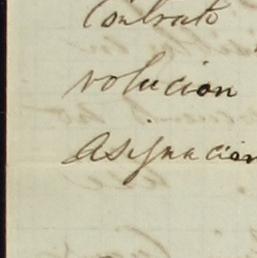 Contrato
volucion
asignacion